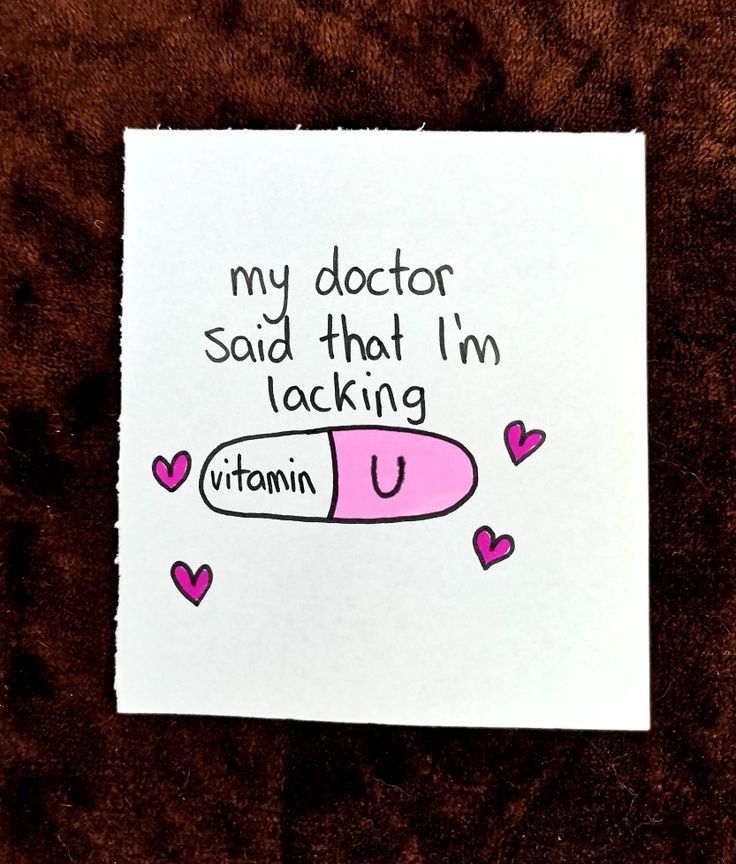 my doctor
said that I'm
lacking
vitamin U